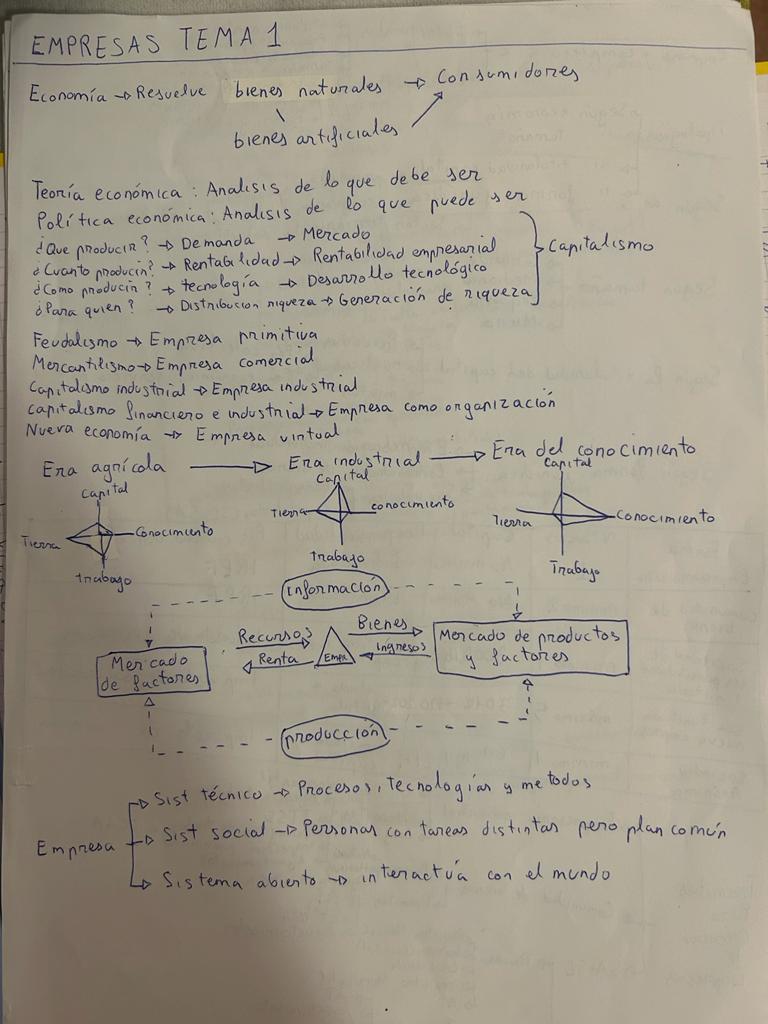 EMPRESAS TEMA 1
Economía → Resuelve bienes naturales → Consumidores
bienes artificiales
Teoría económica: Analisis de lo que debe ser
Política económica: Analisis de lo que puede ser
¿Que producir? → Demanda → Mercado
¿Cuanto producir? → Rentabilidad → Rentabilidad empresarial
¿Como producir? → tecnología → Desarrollo tecnológico
¿Para quien? → Distribucion riqueza → Generación de riqueza
Capitalismo
Feudalismo → Empresa primitiva
Mercantilismo → Empresa comercial
Capitalismo industrial → Empresa industrial
capitalismo financiero e industrial → Empresa como organización
Nueva economía → Empresa virtual
Era agrícola → Era industrial → Era del conocimiento
Capital
Tierra
Conocimiento
trabajo
Capital
Tierra
conocimiento
trabajo
Capital
Tierra
Conocimiento
Trabajo
información
Mercado de factores
Recursos
Renta
Empr.
Bienes
Ingresos
Mercado de productos
y factores
producción
Empresa
Sist técnico → Procesos, tecnologías y metodos
Sist social → Personas con tareas distintas pero plan común
Sistema abierto → interactúa con el mundo